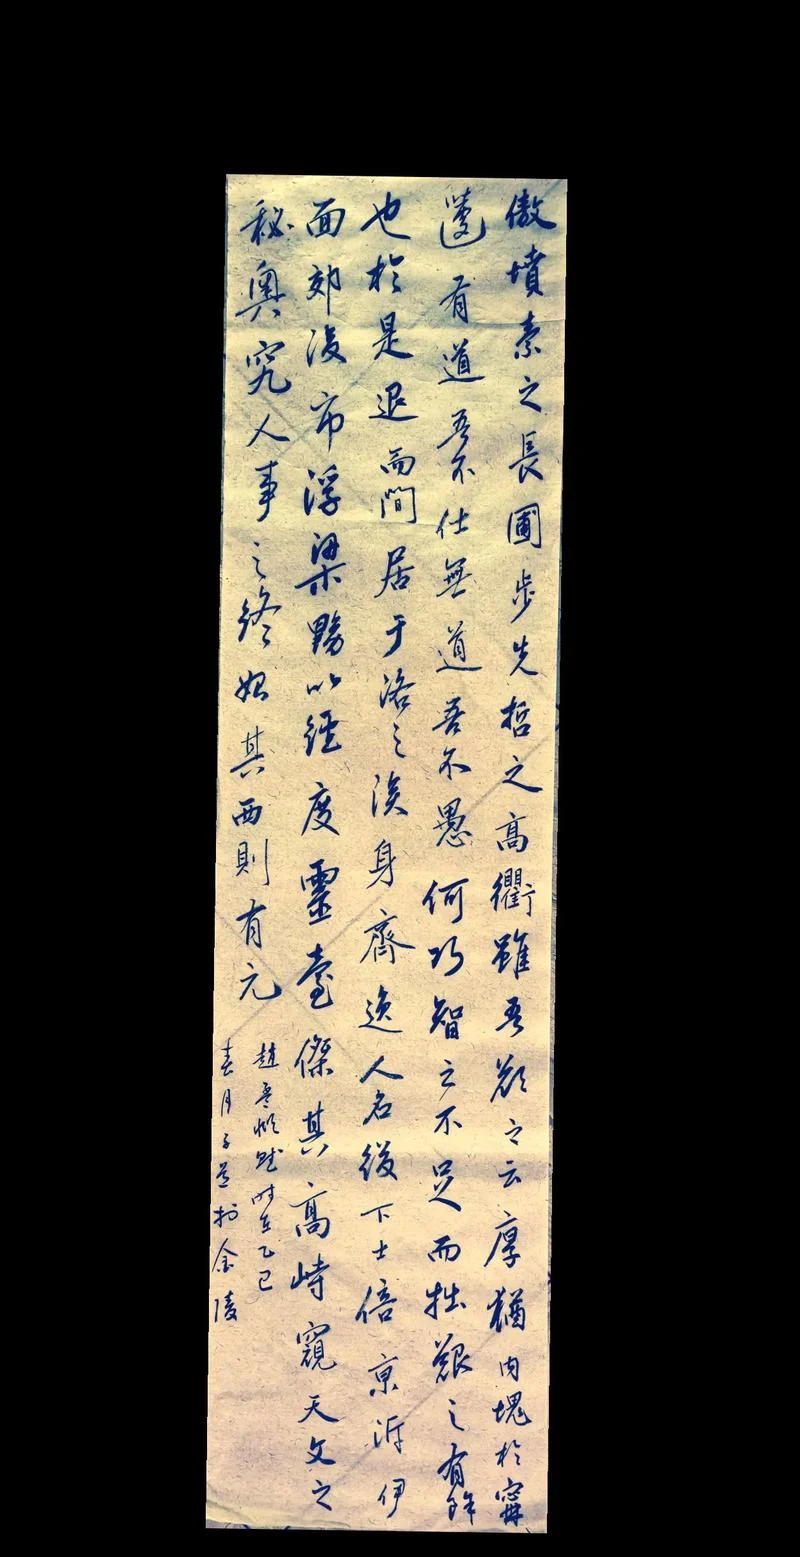 傲墳素之長圃步先哲之高衢雖吾顏之云厚猶内愧於寗
蘧有道吾不仕無道吾不愚何巧智之不足而拙艱之有餘
也於是退而閒居于洛之涘身齊逸人名綴下士倍京泝伊
面郊後市浮梁黝以徑度靈臺傑其高峙窺天文之
秘奧究人事之終始其西則有元
趙孟頫賦時在乙巳
春月子昷於金陵